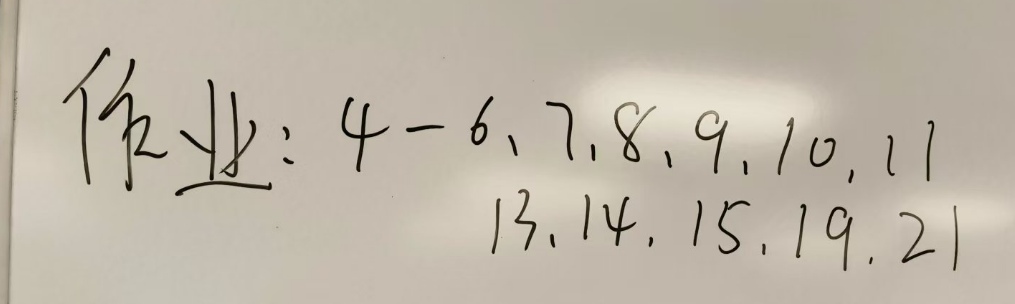 作业: 4-6、7、8、9、10、11
13、14、15、19、21